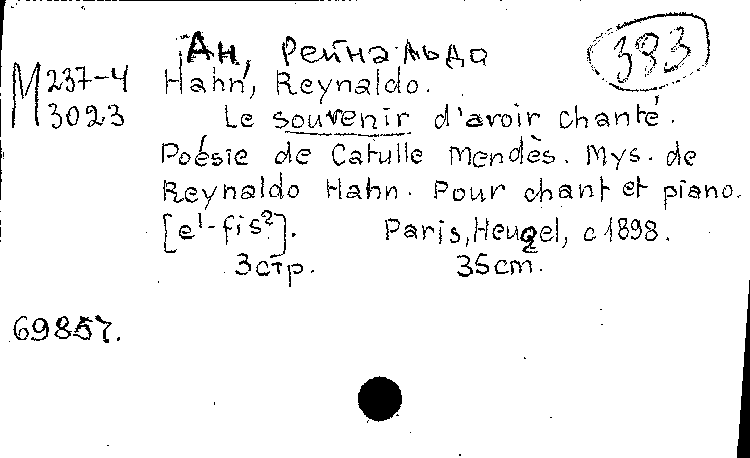 Ан, Рейнальдо
393
M 237-4
3023
Hahn, Reynaldo.
Le souvenir d'avoir chanté.
Poésie de Catulle Mendès. Mys. de
Reynaldo Hahn. Pour chant et piano.
[e¹-fis²]. Paris, Heugel, c 1898.
3 стр. 35 cm.
69857.